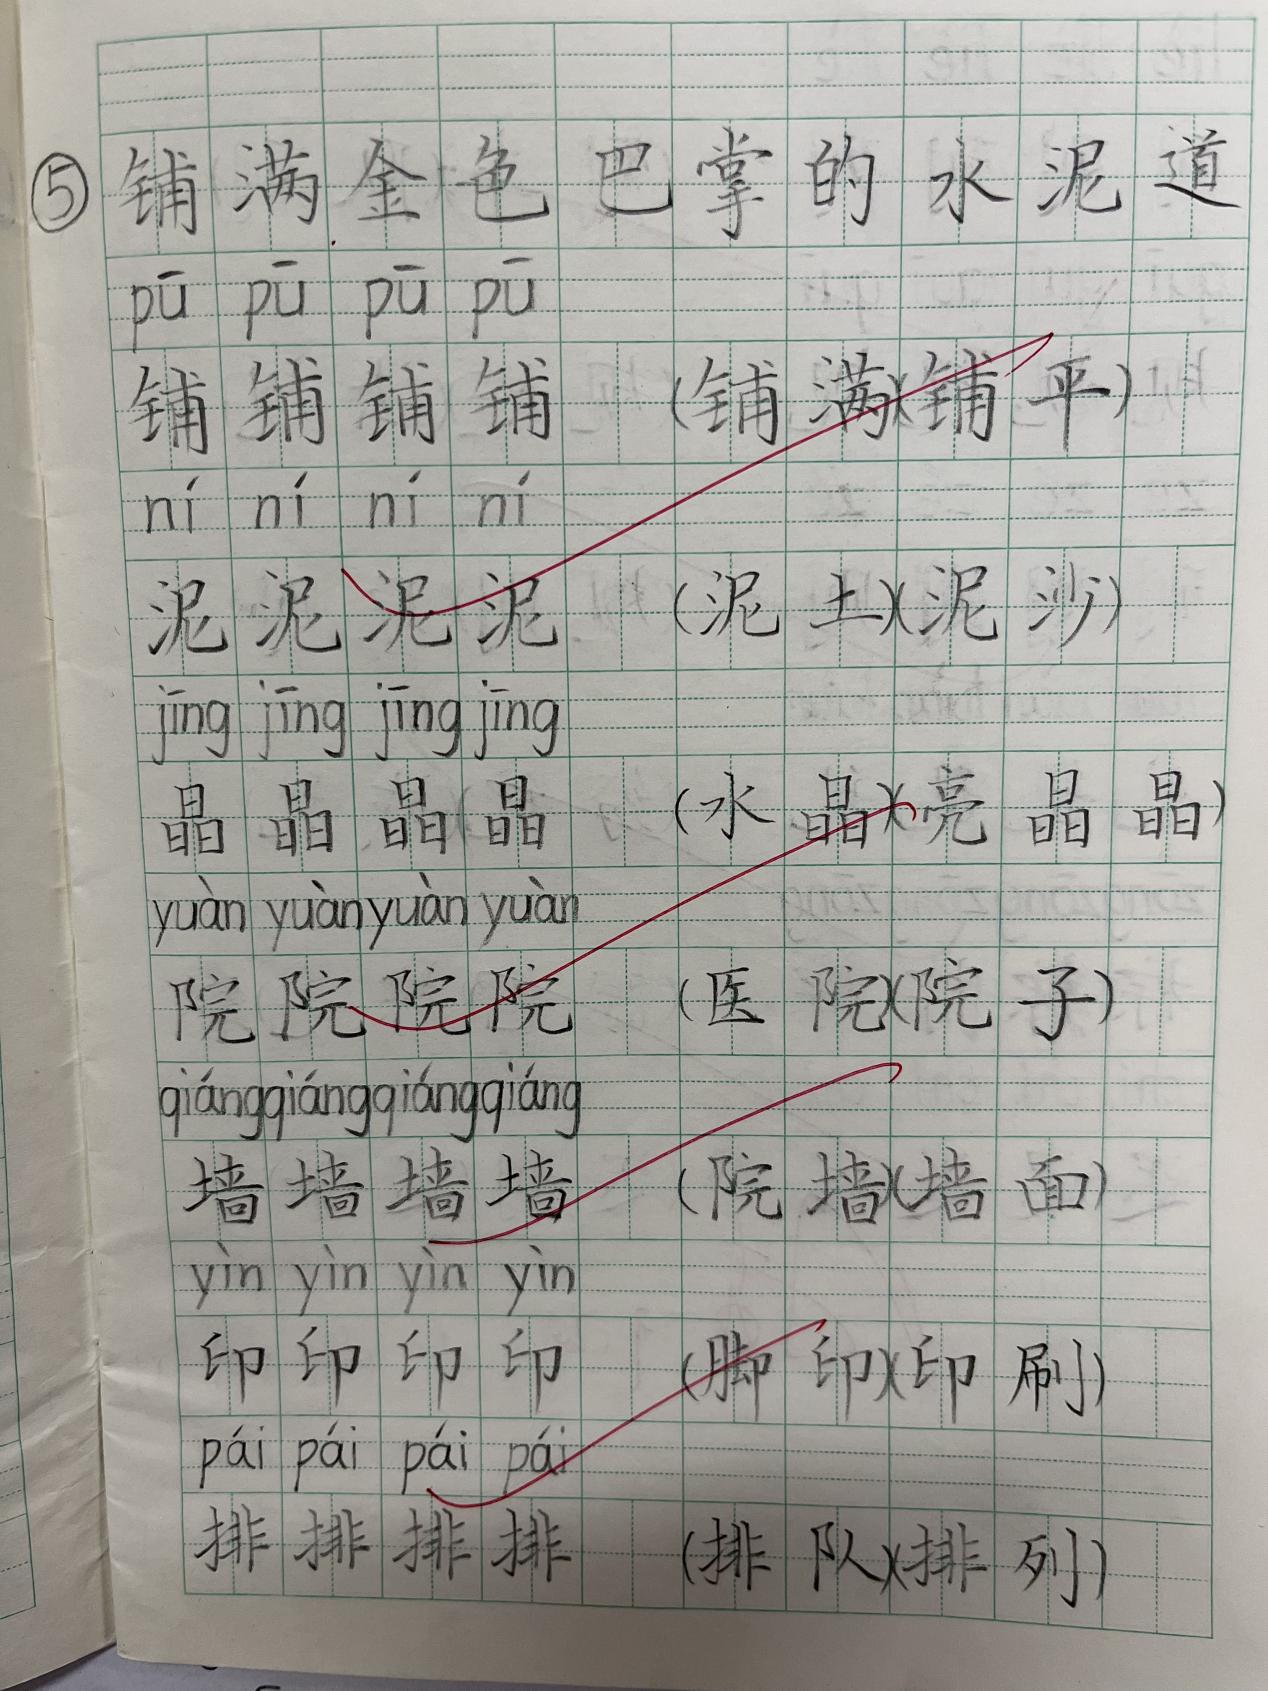 ⑤铺满金色巴掌的水泥道
pū pū pū pū
铺铺铺铺(铺满)(铺平)
ní ní ní ní
泥泥泥泥(泥土)(泥沙)
jīng jīng jīng jīng
晶晶晶晶(水晶)(亮晶晶)
yuàn yuàn yuàn yuàn
院院院院(医院)(院子)
qiáng qiáng qiáng qiáng
墙墙墙墙(院墙)(墙面)
yìn yìn yìn yìn
印印印印(脚印)(印刷)
pái pái pái pái
排排排排(排队)(排列)